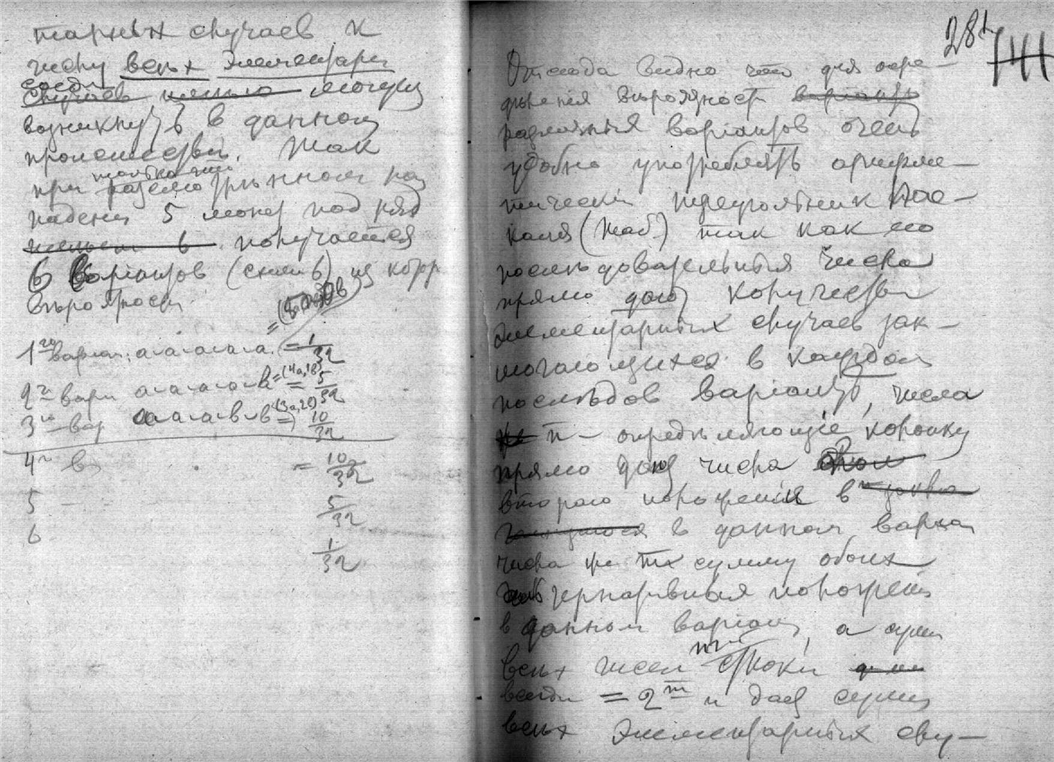 тарных случаев к
числу всѣх элементарн
случаев могущ
возникнуть в данном
происшествии. Так
только что
при разсмотрѣнном на
падении 5 монет подряд
получается
6 варiантов (схем 6) из корр
вѣроятности
1го варiан. а а а а а. = 1/32
2го вари а а а а в = (4а,1в) = 5/32
3го вар а а а в в (3а,2в) = 10/32
4го в = 10/32
5 5/32
6 1/32
281
141
Отсюда видно что для опре-
дѣления вѣроятност варiанто
различныя варiантов очень
удобно употреблять арифме-
тическiй треугольник Пас-
каля (Таб) так как его
послѣдовательныя числа
прямо дают количества
элементарных случаев зак-
лючающихся в каждом
послѣдов варiантѣ, числа
n – опредѣляющiе колонку
прямо дают числа
второго положения в
в данном вариан
числа же m сумму обоих
альтернативныя положенiй
в данном варiант, а сумм
всѣх чисел строки
всегда = 2 m и дает сумму
всѣх элементарных слу-